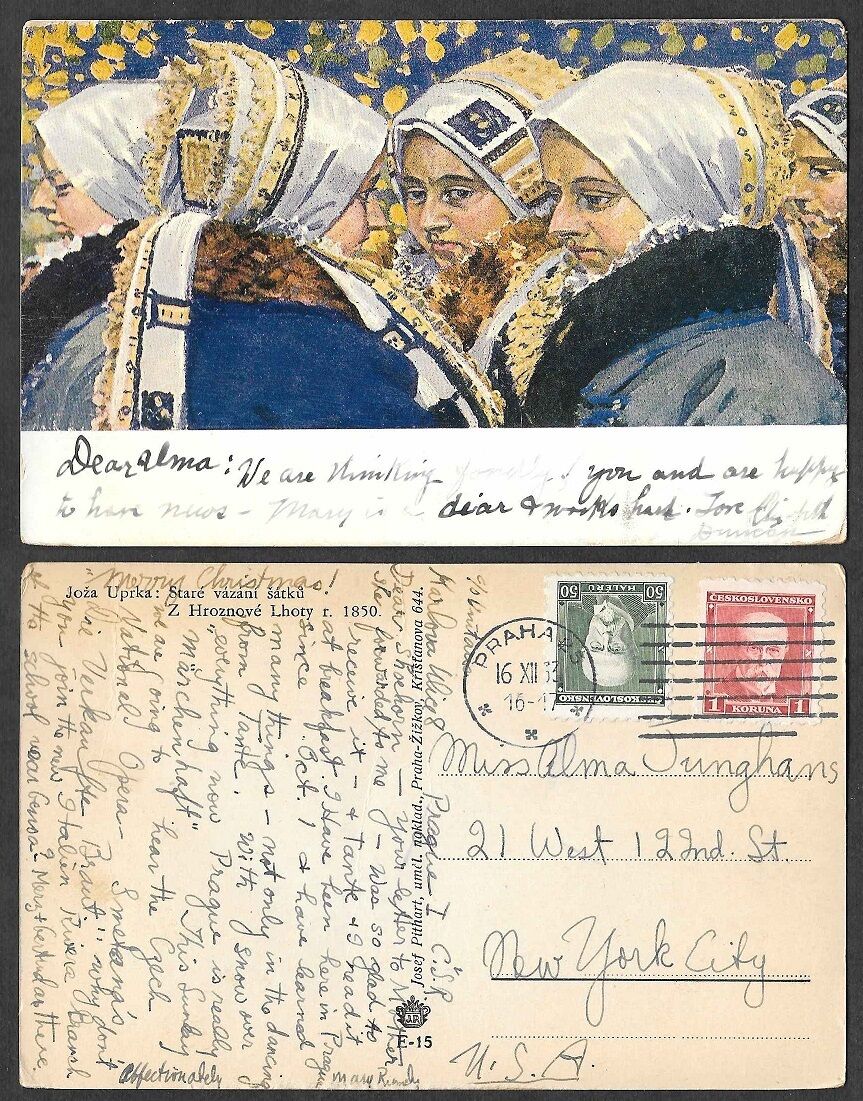 Dear Alma: We are thinking fondly of you and are happy
to have news - Mary is a dear & works hard. Love
Duncan
"Merry Christmas!
Joža Uprka: Staré vázání šátků
Z Hroznové Lhoty r. 1850.
Josef Pithart, uměl. naklad., Praha-Žižkov, Křišťanova 644.
E-15
Prague I Č.S.R.
Dear — your letter to Mother
forwarded to me - was so glad to
receive it - & Tante & I read it
at breakfast. I have been here in Prague
since Oct. 1 & have learned
many things - not only in the dancing
from Tante. With snow over
everything now Prague is really
"märchenhaft" This Sunday
we are going to hear the Czech
National Opera - Smetana's
"Die Verkaufte Braut". Why don't
you join the new Italian Riviera Branch
of the school near Genoa? Merz & Gertrud are there.
affectionately
Mary
PRAHA
16 XII
16-17
50 HALÉRŮ 50
ČESKOSLOVENSKO
ČESKOSLOVENSKO
1 KORUNA 1
Miss Alma Junghans
21 West 122nd. St.
New York City
U.S.A.